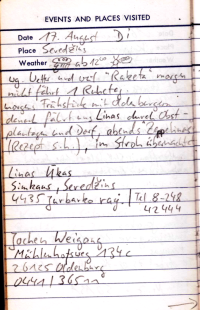 EVENTS AND PLACES VISITED
Date 17. August Di
Place Seredžius
Weather ab 12°°
wg. Wetter und verl. "Raketa" morgen
nicht fährt 1 Ruhetag.
morgens Frühstück mit Oldenburgern
danach Fahrt mit Linas durch Obst-
plantage und Dorf, abends
(Rezept s.h.), im Stroh übernachtet
Linas Ūkas
Simkaus, Seredžius
4435 Jurbarko raj. Tel 8-248
42444
Jochen Weigang
Mühlenhofsweg 134c
26125 Oldenburg
0441/